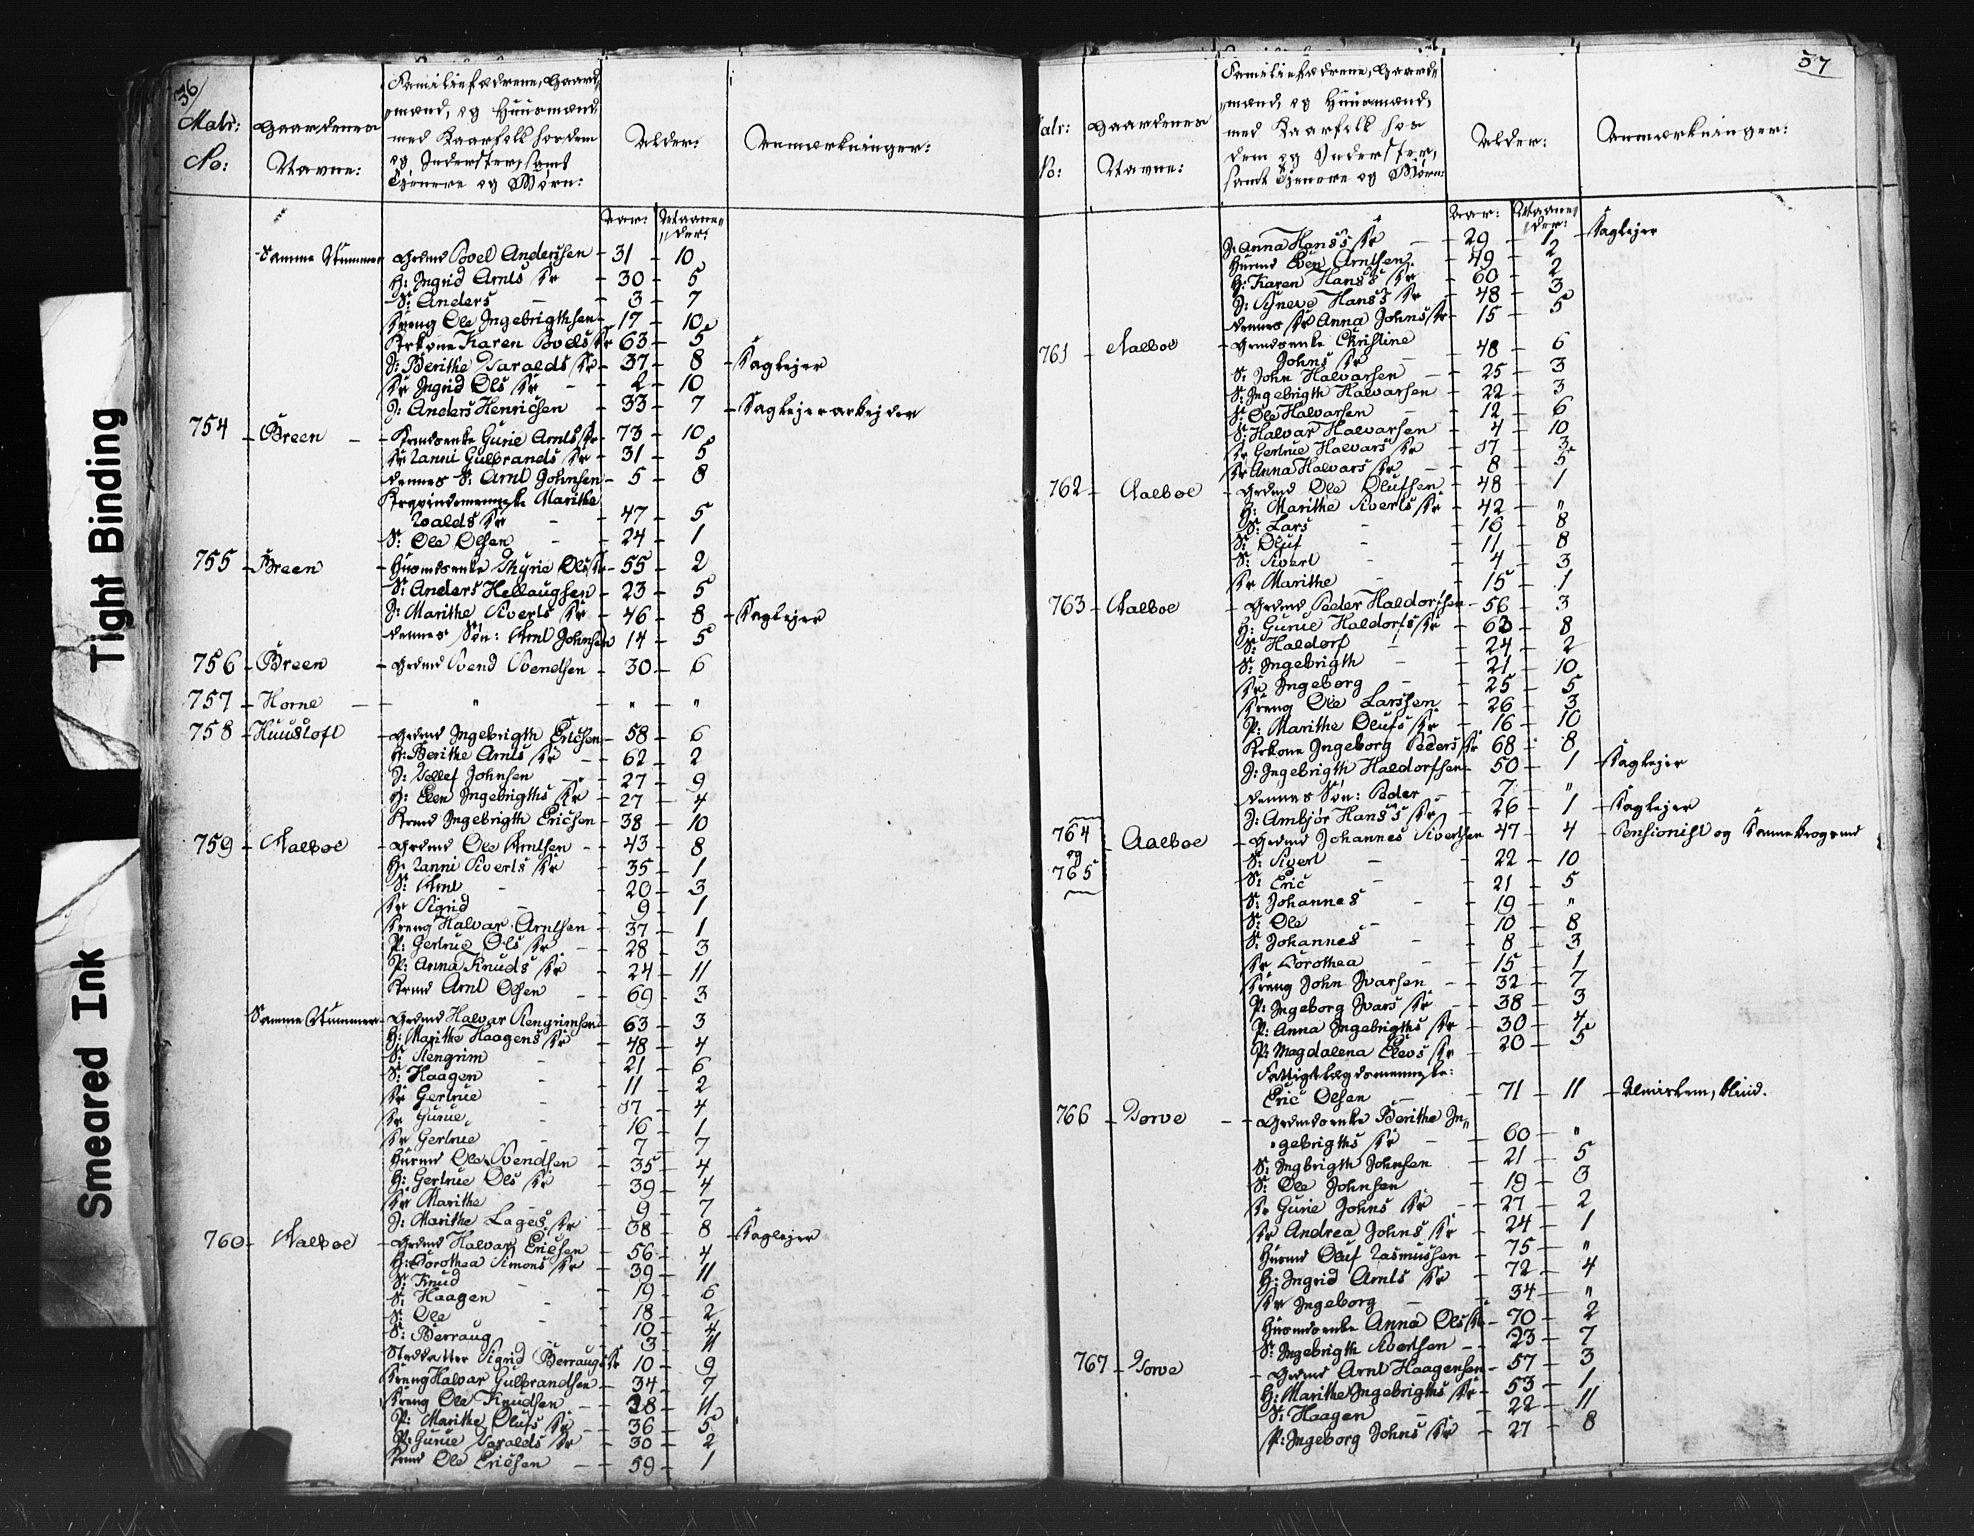 Tight Binding
Smeared Ink
36
Matr: No:
Gaardenes Navne:
Familiefædrene, Gaard-
mænd, og Huusmænd
med Kaarfolk hos dem
og Inderster, samt
Tjenere og Børn:
Alder:
Anmærkninger:
Aar: Maane-
der:
Samme Nummer Grdmd Poel Andersen 31 10
H: Ingrid Arnts Dr 30 5
S: Anders 3 7
Dreng Ole Ingebrigthsen 17 10
Karen Poels Dr 63 5
I: Berithe Haralds Dr 37 8 Daglejer
Dr Ingrid Ols Dr 2 10
I: Anders Henrichsen 33 7 Daglejerarbejder
754 Breen Gurie Arnts Dr 73 10
Gulbrands Dr 31 5
dennes S: Arnt Johnsen 5 8
Marithe
Dr 47 5
S: Ole Olsen 24 1
755 Breen Huusmdsenke Thyrie Ols Dr 55 2
S: Anders Hellaugsen 23 5
I: Marithe Siverts Dr 46 8 Daglejer
dennes Søn: Arnt Johnsen 14 5
756 Breen Grdmd Svend Svendsen 30 6
757 Horne " " "
758 Huusloft Grdmd Ingebrigth Erichsen 58 6
H: Berithe Arnts Dr 62 2
I: Johnsen 27 9
H: Elen Ingebrigths Dr 27 4
Ingebrigth Erichsen 38 10
759 Aalboe Grdmd Ole Arntsen 43 8
H: Siverts Dr 35 1
S: Arnt 20 3
Dr Sigrid 9 1
Dreng Halvar Arntsen 37 1
P: Gertrue Ols Dr 28 3
P: Anna Knuds Dr 24 11
Arnt Olsen 69 3
Samme Nummer Grdmd Halvar Stengrimsen 63 3
H: Marithe Haagens Dr 48 4
S: Stengrim 21 6
S: Haagen 11 2
Dr Gertrue 4
Dr Gurue 16 1
Dr Gertrue 7 7
Huusmd Ole Svendsen 35 4
H: Gertrue Ols Dr 39 4
Dr Marithe 9 7
I: Marithe Lages Dr 38 8 Daglejer
760 Aalboe Grdmd Halvar Erichsen 56 4
H: Dorothea Simons Dr 39 11
S: Knud 19 6
S: Haagen 18 2
S: Ole 10 4
S: Berraug 3 11
Steddatter Sigrid Berraugs Dr 10 9
Dreng Halvar Gulbrandsen 34 7
Dreng Ole Knudsen 28 11
P: Marithe Olufs Dr 36 5
P: Gurue Haralds Dr 30 2
Ole Erichsen 59 1
37
Matr: No:
Gaardenes Navne:
Familiefædrene, Gaard-
mænd, og Huusmænd,
med Kaarfolk hos
dem og Inderster,
samt Tjenere og Børn:
Alder:
Anmærkninger:
Aar: Maane-
der:
I: Anna Hans's Dr 29 1 Daglejer
Huusmd Even Arntsen 49 2
H: Karen Hans's Dr 60 2
I: Hans's Dr 48 3
dennes Dr Anna Johns Dr 15 5
761 Aalboe Grdmdsenke Christine
Johns Dr 48 6
S: John Halvarsen 25 3
S: Ingebrigth Halvarsen 22 3
S: Ole Halvarsen 12 6
S: Halvar Halvarsen 4 10
Dr Gertrue Halvars Dr 3
Dr Anna Halvars Dr 8 5
762 Aalboe Grdmd Ole Olufsen 48 1
H: Marithe Siverts Dr 42 "
S: Lars 16 8
S: Oluf 11 8
S: Sivert 4 3
Dr Marithe 15 1
763 Aalboe Grdmd Peder Haldorsen 56 3
H: Gurue Haldors Dr 63 8
S: Haldorf 24 2
S: Ingebrigth 21 10
Dr Ingeborg 25 5
Dreng Ole Larssen 26 3
P: Marithe Olufs Dr 16 10
Ingeborg Peders Dr 68 8
I: Ingebrigth Haldorsen 50 1 Daglejer
dennes Søn: Peder 7 "
I: Ambjør Hans's Dr 26 1 Daglejer
764 og 765 Aalboe Grdmd Johannes Sivertsen 47 4 Pensionist og Dannebrogsmd
S: Sivert 22 10
S: Eric 21 5
S: Johannes 19 "
S: Ole 10 8
S: Johannes 8 3
Dr Dorothea 15 1
Dreng John Ivarsen 32 7
P: Ingeborg Ivars Dr 38 3
P: Anna Ingebrigths Dr 30 4
P: Magdalena Elevs Dr 20 5
Fattigt Lægdsmenneske:
Eric Olsen 71 11 Almislem, blind.
766 Torve Grdmdsenke Berithe In-
gebrigths Dr 60 "
S: Ingbrigth Johnsen 21 5
S: Ole Johnsen 19 3
Dr Gurie Johns Dr 27 2
Dr Andrea Johns Dr 24 1
Huusmd Oluf Rasmussen 75 "
H: Ingrid Arnts Dr 72 4
Dr Ingeborg 34 "
Huusmdsenke Anna Ols Dr 70 2
S: Ingebrigth Sivertsen 23 7
767 Torve Grdmd Arnt Haagensen 57 3
H: Marithe Ingebrigths Dr 53 1
S: Haagen 22 11
P: Ingeborg Johns Dr 27 8